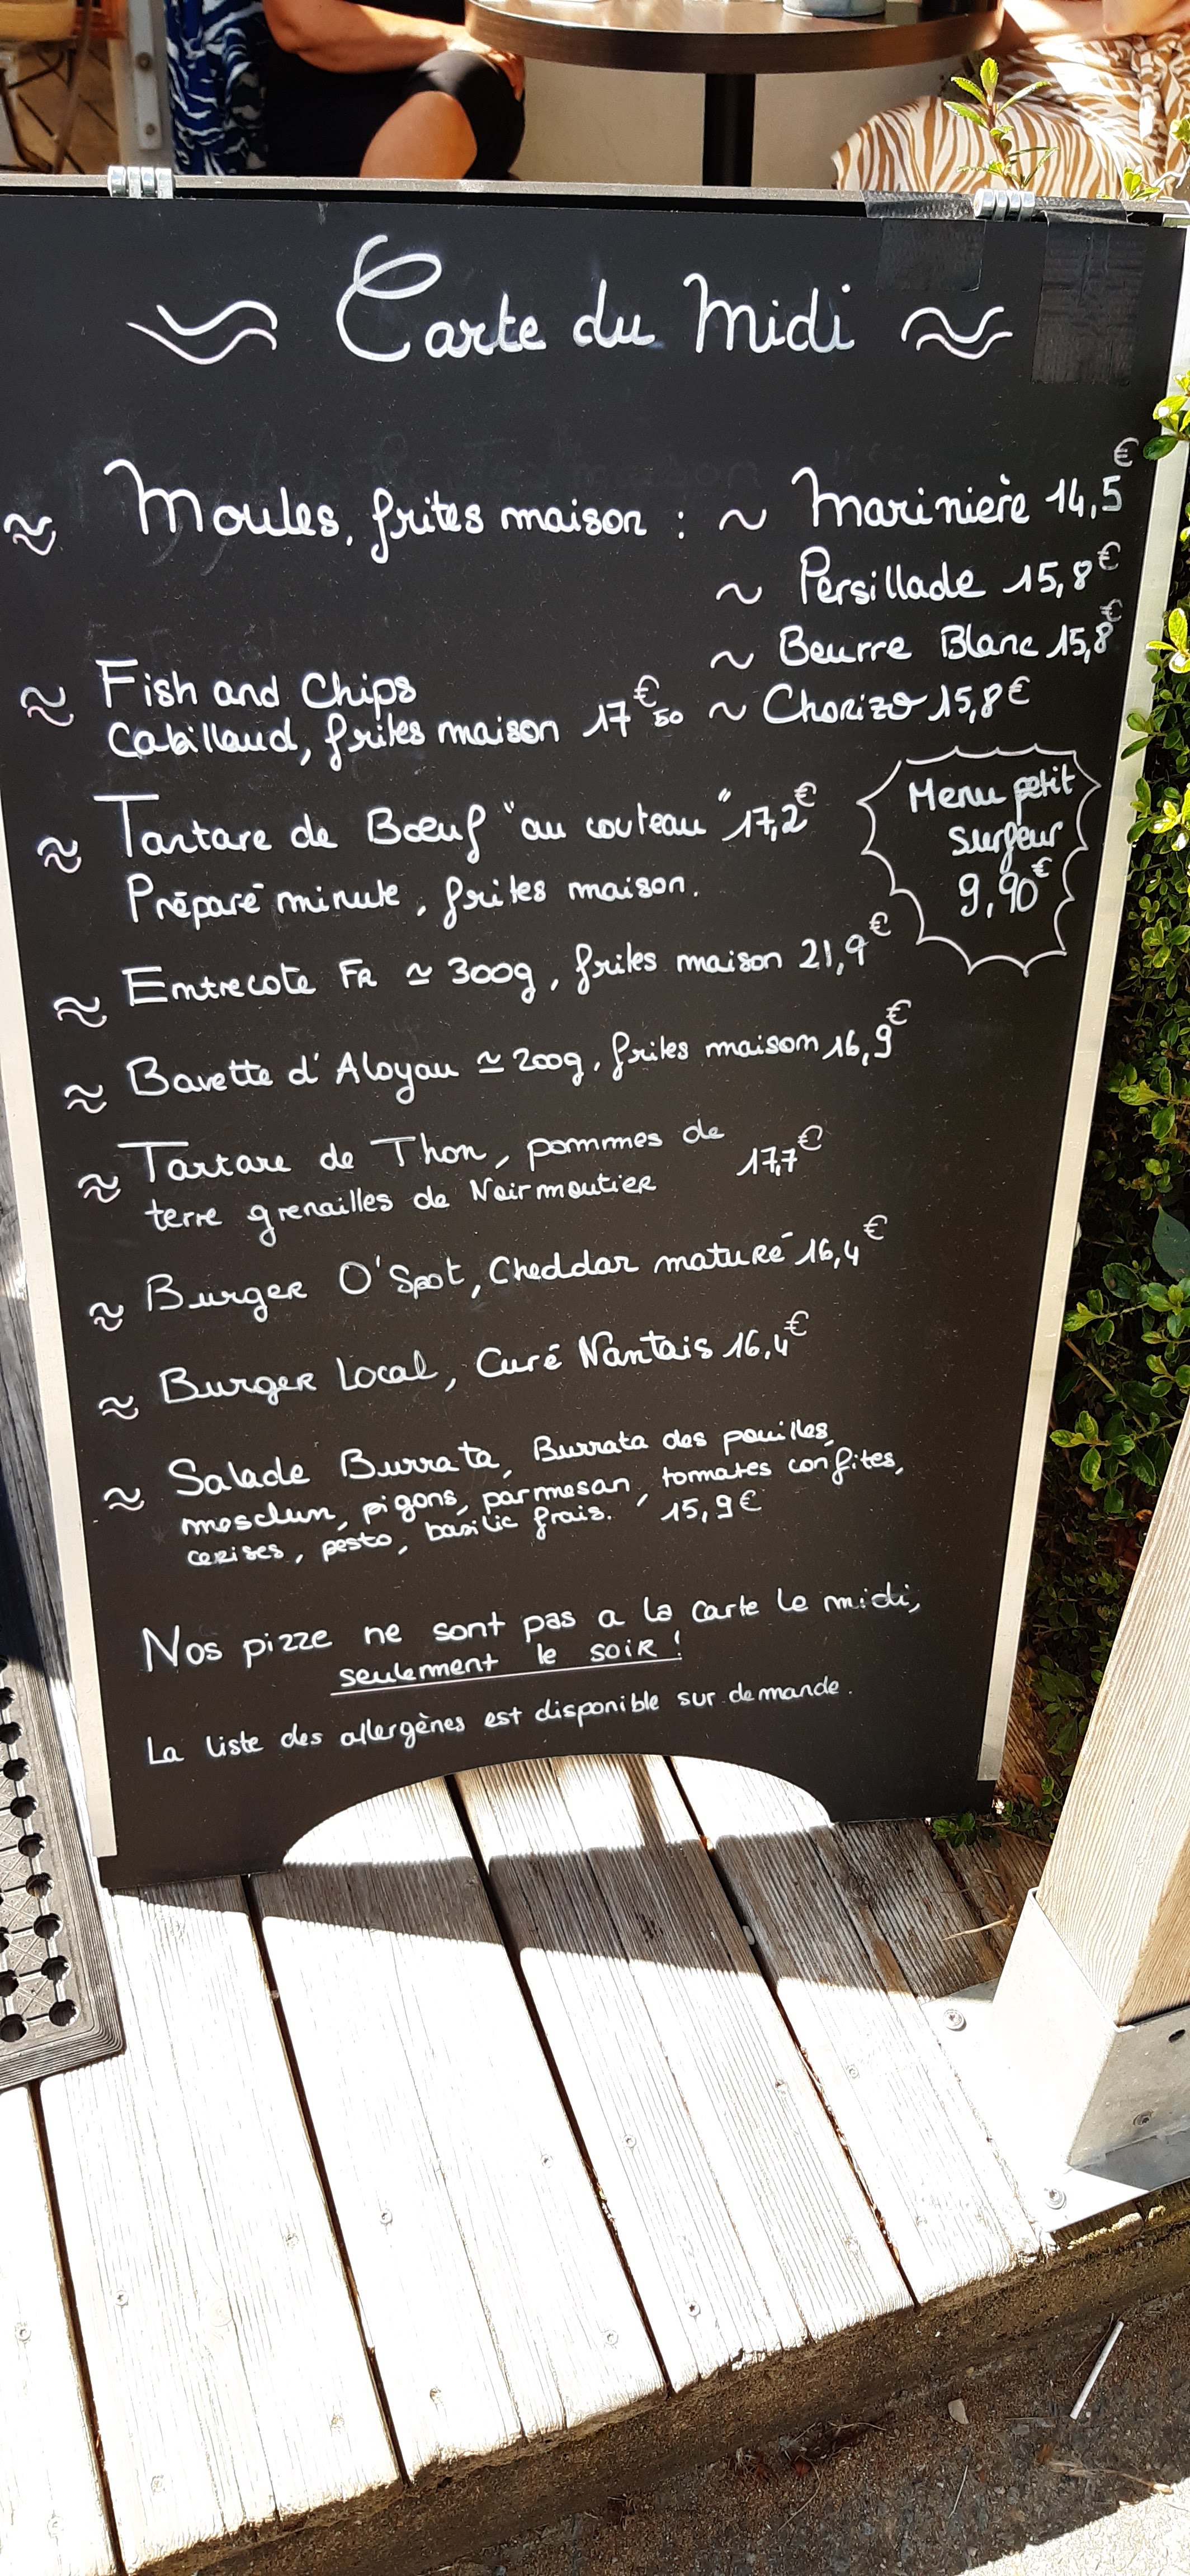 Carte du Midi
≈ Moules, frites maison : ~ Marinière 14,5€
~ Persillade 15,8€
~ Beurre Blanc 15,8€
≈ Fish and Chips
Cabillaud, frites maison 17€50
~ Chorizo 15,8€
≈ Tartare de Bœuf "au couteau" 17,2€
Préparé minute, frites maison.
Menu petit
surfeur
9,90€
≈ Entrecote FR ≃ 300g, frites maison 21,9€
≈ Bavette d'Aloyau ≃ 200g, frites maison 16,9€
≈ Tartare de Thon, pommes de
terre grenailles de Noirmoutier 17,7€
≈ Burger O'Spot, Cheddar maturé 16,4€
≈ Burger Local, Curé Nantais 16,4€
≈ Salade Burrata, Burrata des pouilles,
mesclun, pigons, parmesan, tomates confites,
cerises, pesto, basilic frais. 15,9€
Nos pizze ne sont pas a la carte le midi,
seulement le soir !
La liste des allergènes est disponible sur demande.